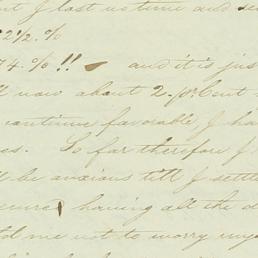 I last us time and se
22 1/2 %
74 % !! and it is jus
now about 2 pr Cent
continue favorable, I ha
So far therefore I
be anxious till I settle
secured having all the d
told me not to worry my